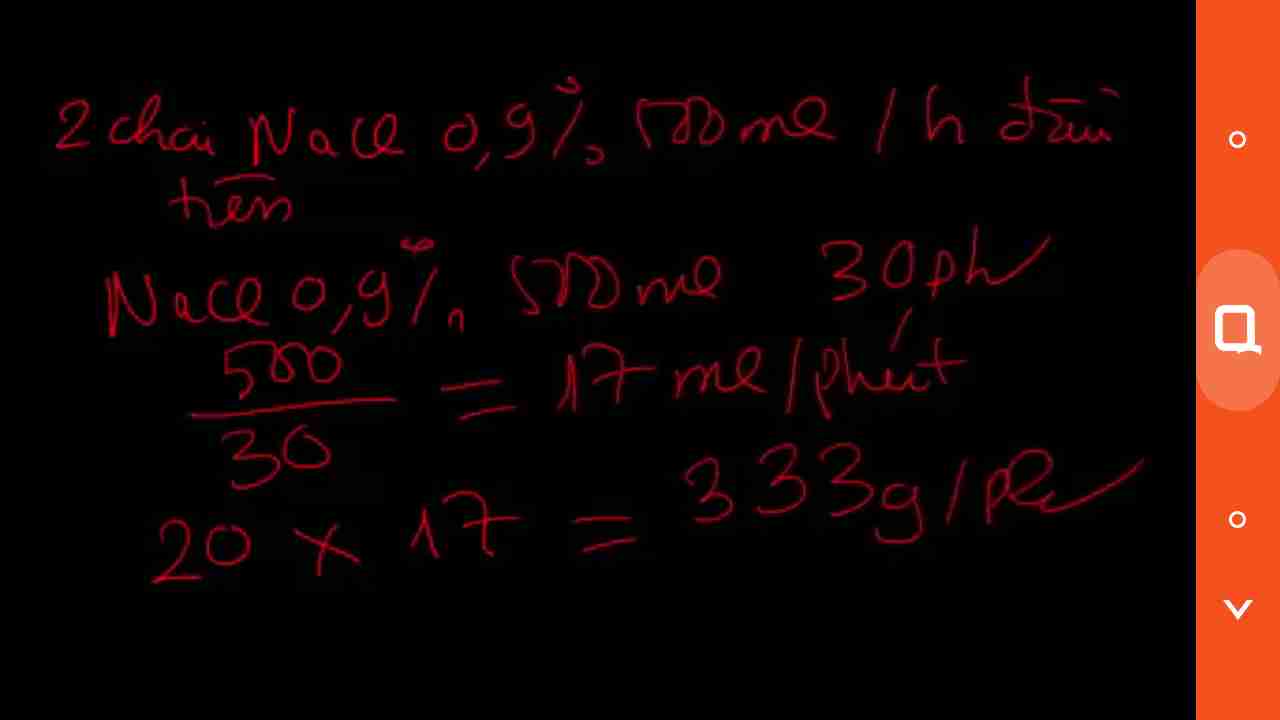 2 chai NaCl 0,9% 500ml / h đầu
tiên
NaCl 0,9% 500ml 30ph
500
30
= 17 ml/phút
20 x 17 = 333g/ph